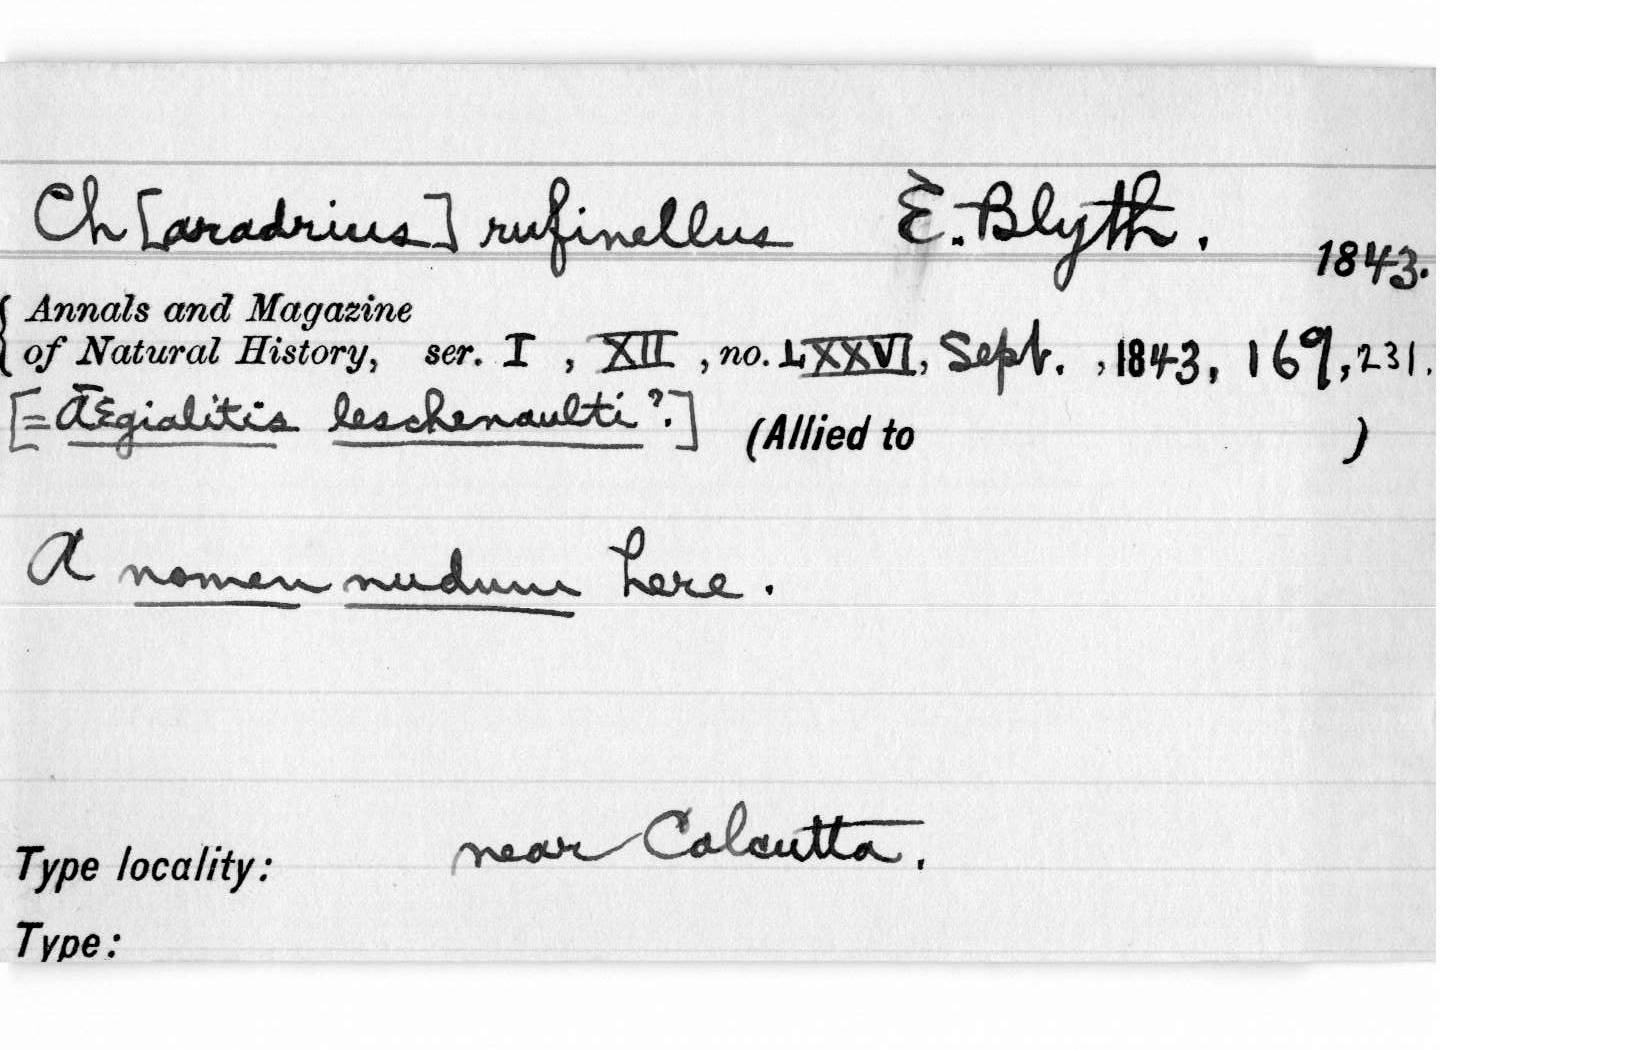 Ch[aradrius] rufinellus E. Blyth. 1843.
{ Annals and Magazine
of Natural History, ser. I , XII , no. LXXVI, Sept. , 1843, 169, 231.
[= Ægialitis leschenaulti ?.] (Allied to )
A nomen nudum here.
Type locality: near Calcutta.
Type: